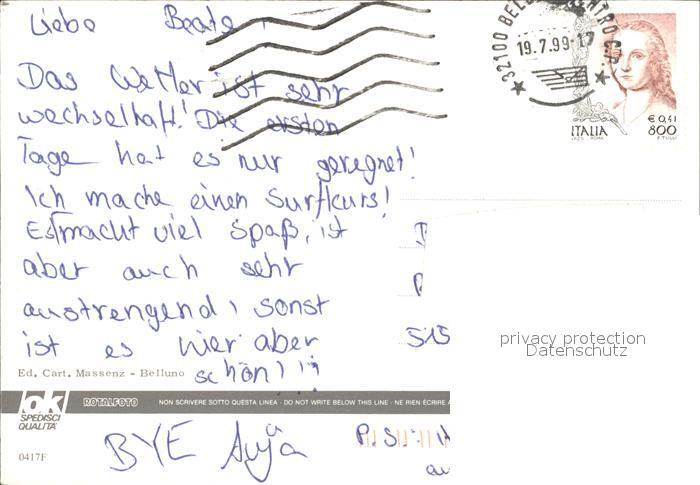 Liebe Beate,
Das Wetter ist sehr
wechselhaft! Die ersten
Tage hat es nur geregnet!
Ich mache einen Surfkurs!
Es macht viel Spaß, ist
aber auch sehr
anstrengend, sonst
ist es hier aber
schön!!!
Ed. Cart. Massenz - Belluno
ok
SPEDISCI
QUALITÀ
ROTALFOTO
NON SCRIVERE SOTTO QUESTA LINEA - DO NOT WRITE BELOW THIS LINE - NE RIEN ÉCRIRE
0417F
BYE Anja
P.S.:
32100 BELLUNO CENTRO C.P.
19.7.99-17
€ 0,41
ITALIA 800
I.P.Z.S. - ROMA F. TULLI
515
privacy protection
Datenschutz